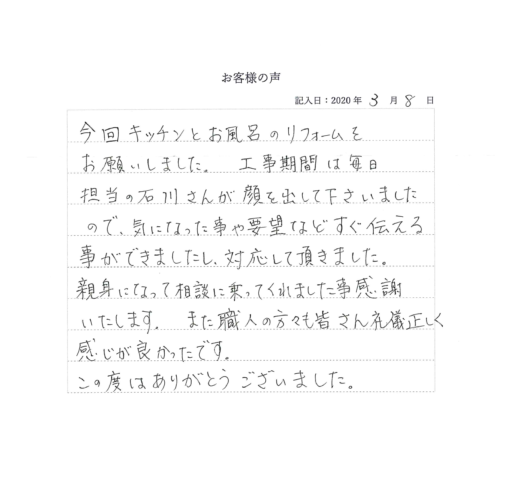 お客様の声
記入日：2020年 3月 8日
今回キッチンとお風呂のリフォームを
お願いしました。 工事期間は毎日
担当の石川さんが顔を出して下さいました
ので、気になった事や要望などすぐ伝える
事ができましたし、対応して頂きました。
親身になって相談に乗ってくれました事感謝
いたします。 また職人の方々も皆さん礼儀正しく
感じが良かったです。
この度はありがとうございました。